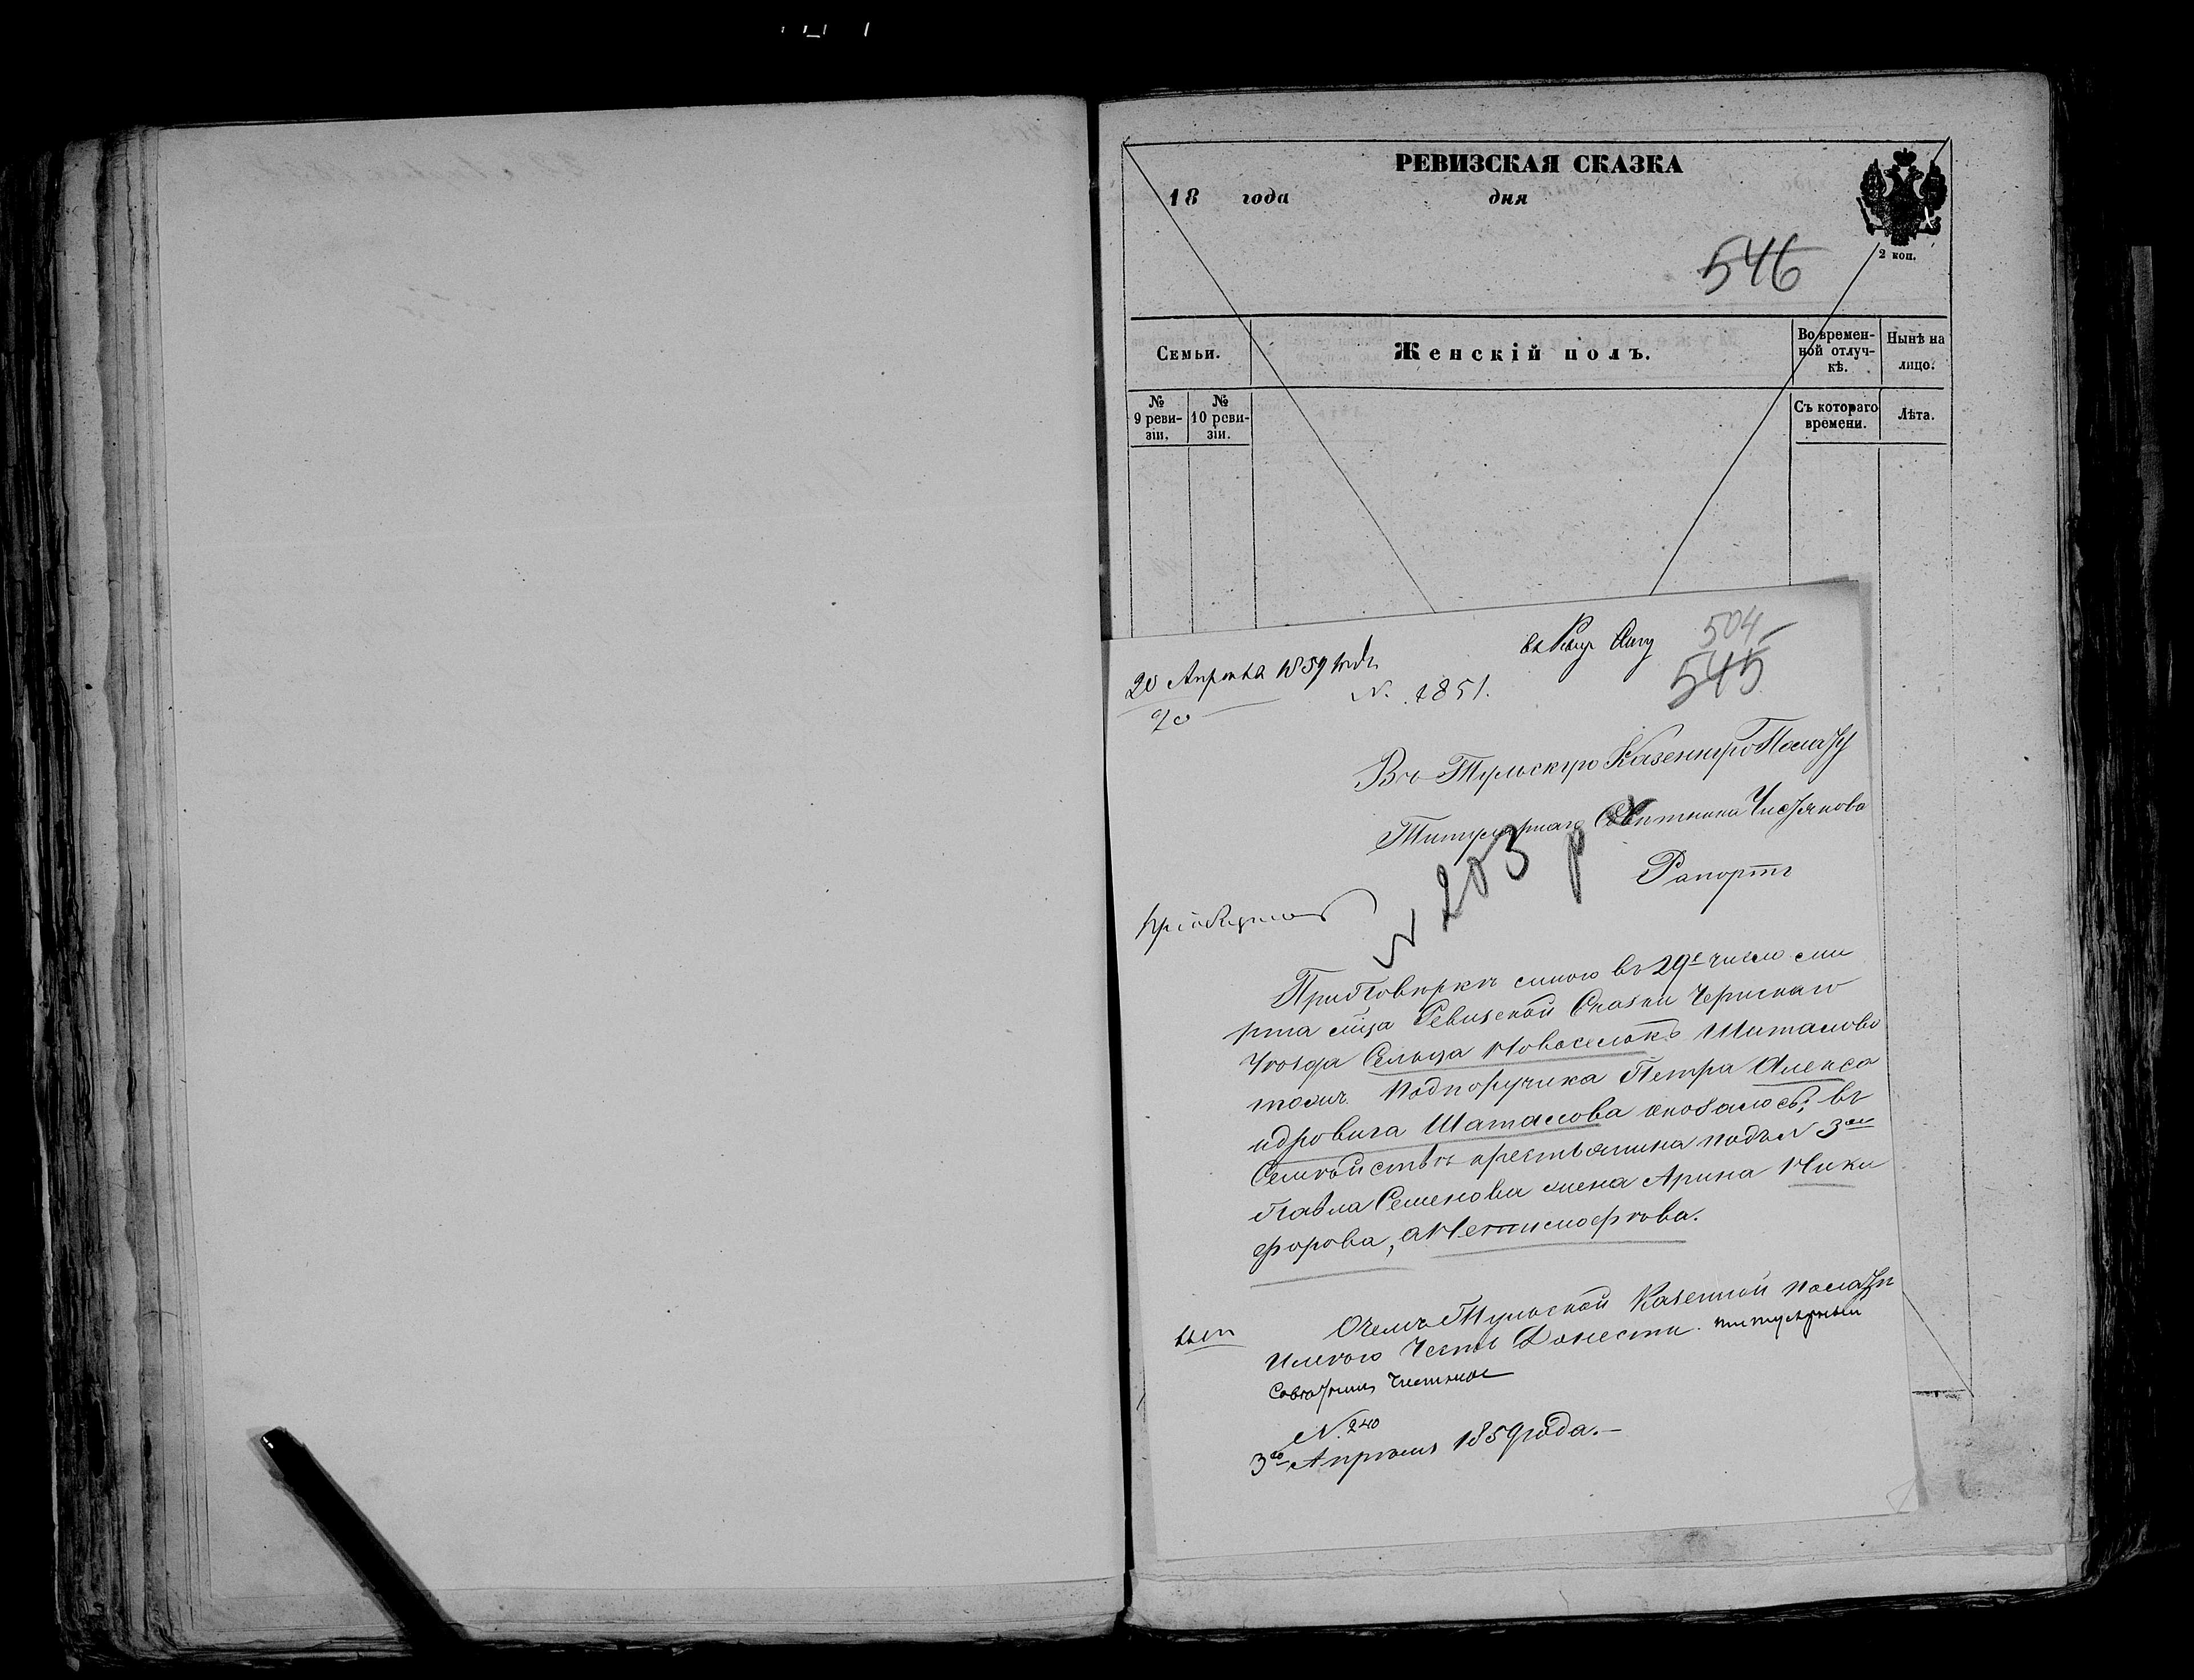 РЕВИЗСКАЯ СКАЗКА
18 года дня
2 коп.
546
Семьи.
Женскій полъ.
Во времен-
ной отлуч-
кѣ.
Нынѣ на
лицо.
№
9 реви-
зіи.
№
10 реви-
зіи.
Съ котораго
времени.
Лѣта.
504
545
20 Апрѣля 1859 года
№ 1851.
Въ Тульскую Казенную Палату
Титулярнаго Совѣтника Чистякова
Рапортъ
№ 203
При повѣркѣ мною въ 29е число
Ревизской Сказки Чернскаго
Уѣзда Сельца Новоселокъ Шаталово
тожъ Подпоручика Петра Алекса
ндровича Шаталова оказалось, въ
Семействѣ крестьянина подъ № 3мъ
Павла Семенова жена Арина Ники
форова, а не
О чемъ Тульской Казенной Палатѣ
имѣю честь донести. Титулярный
Совѣтникъ
№. 240
3го Апрѣля 1859 года.